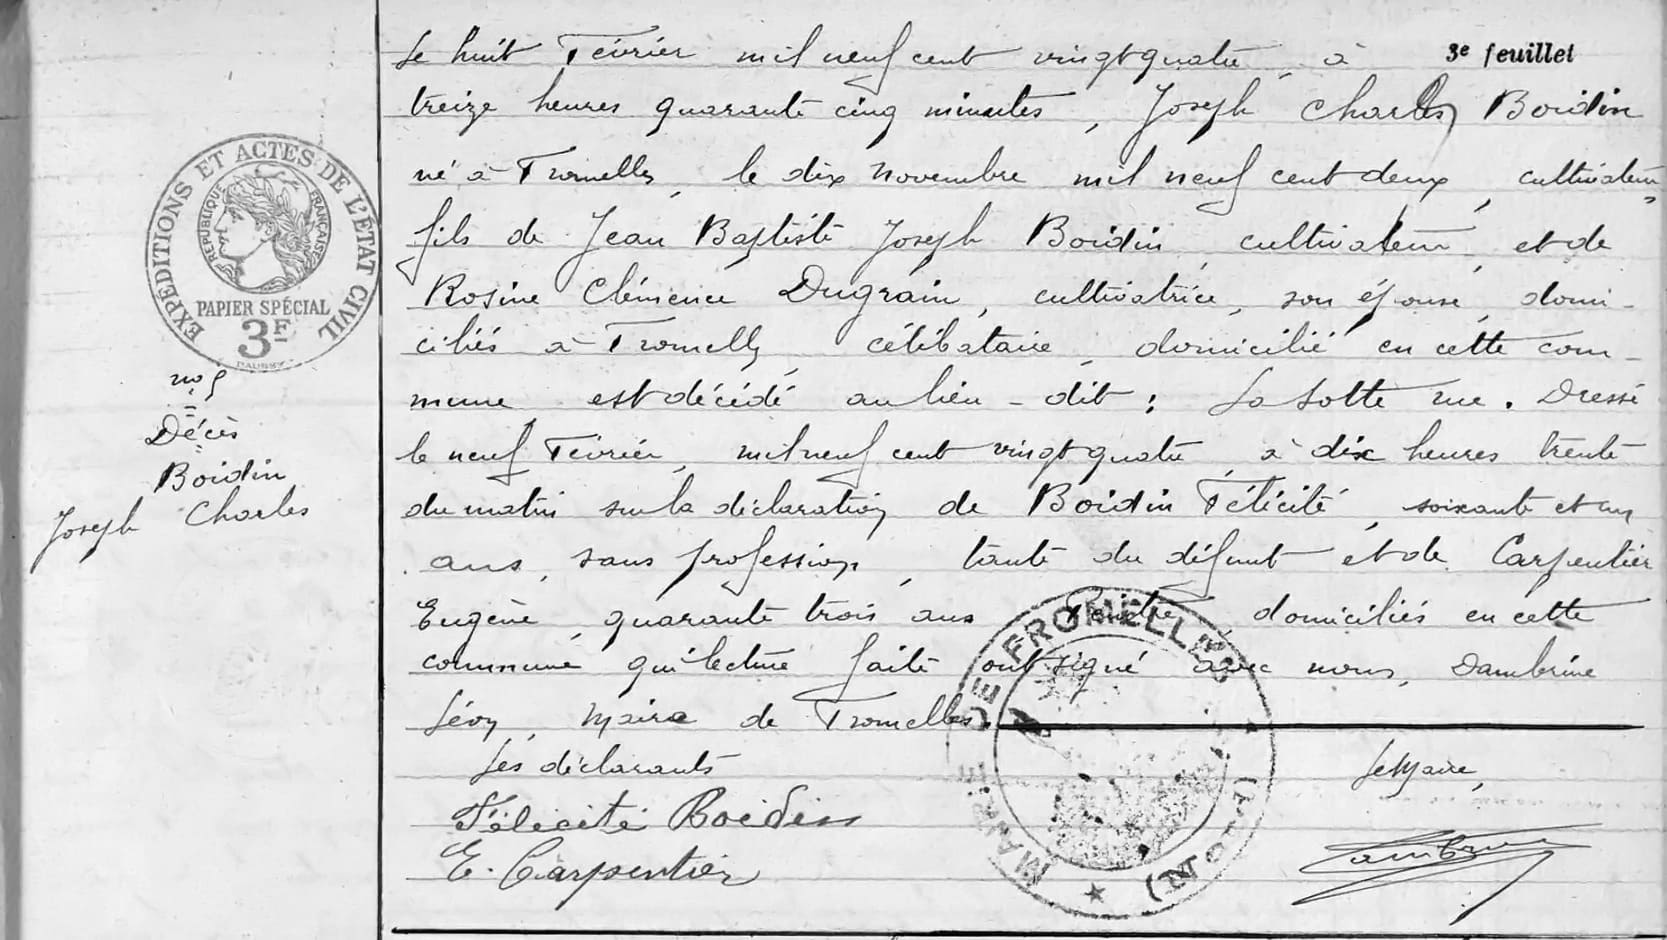 3e feuillet
Le huit Février mil neuf cent vingt quatre, à
treize heures quarante cinq minutes, Joseph Charles Boidin
né à Fromelles, le dix novembre mil neuf cent deux, cultivateur,
fils de Jean Baptiste Joseph Boidin, cultivateur, et de
Rosine Clémence Dugrain, cultivatrice, son épouse, domi-
ciliés à Fromelles, célibataire, domicilié en cette com-
mune est décédé au lieu-dit : La Sotte rue. Dressé
le neuf Février, mil neuf cent vingt quatre, à dix heures trente
du matin sur la déclaration de Boidin Félicité, soixante et un
ans, sans profession, tante du défunt et de Carpentier
Eugène, quarante trois ans, domiciliés en cette
commune qui lecture faite ont signé avec nous, Dambrine
Lévy, Maire de Fromelles.
Les déclarants
Le Maire,
Félicité Boidin
E. Carpentier
Dambrine
EXPÉDITIONS ET ACTES DE L'ÉTAT CIVIL
RÉPUBLIQUE FRANÇAISE
PAPIER SPÉCIAL
3F
Décès
Boidin
Joseph Charles
MAIRIE DE FROMELLES
(NORD)